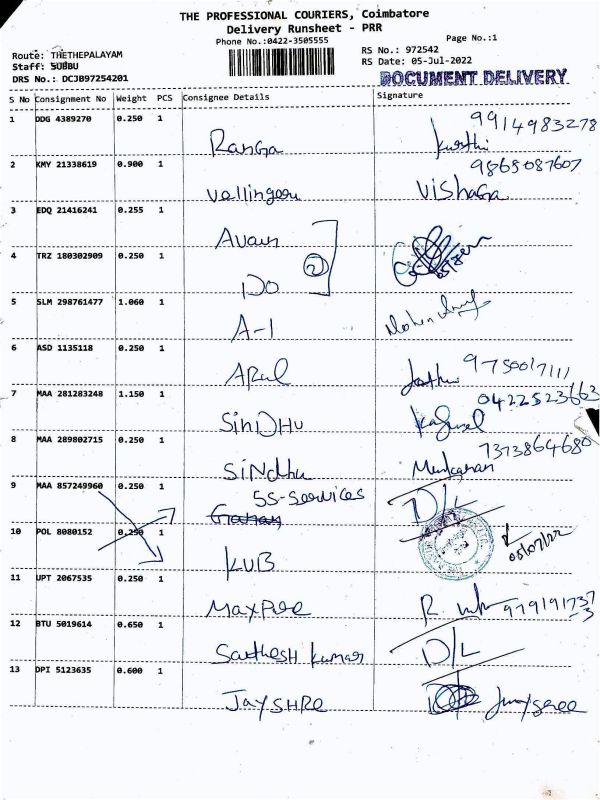 THE PROFESSIONAL COURIERS, Coimbatore
Delivery Runsheet - PRR
Phone No.:0422-3505555
Page No.:1
Route: THETHEPALAYAM
RS No.: 972542
Staff: SUBBU
RS Date: 05-Jul-2022
DRS No.: DCJB97254201
DOCUMENT DELIVERY
S No Consignment No Weight PCS Consignee Details Signature
1 DDG 4389270 0.250 1
RanGa 9914983278
2 KMY 21338619 0.900 1
Vellingeru Vishaga 9865087607
3 EDQ 21416241 0.255 1
4 TRZ 180302909 0.250 1
2
Do
5 SLM 298761477 1.060 1
A-1
6 ASD 1135118 0.250 1
Arul 9750017111
7 MAA 281283248 1.150 1
SinDHU 0422523663
8 MAA 289802715 0.250 1
SiNdhu 7373864680
9 MAA 857249960 0.250 1
SS-Services
D/L
10 POL 8080152 0.250 1
KUB 05/07/22
11 UPT 2067535 0.250 1
Maxpure R
12 BTU 5019614 0.650 1
Sathesh Kumar D/L
13 DPI 5123635 0.600 1
JAYSHRE Jayseree